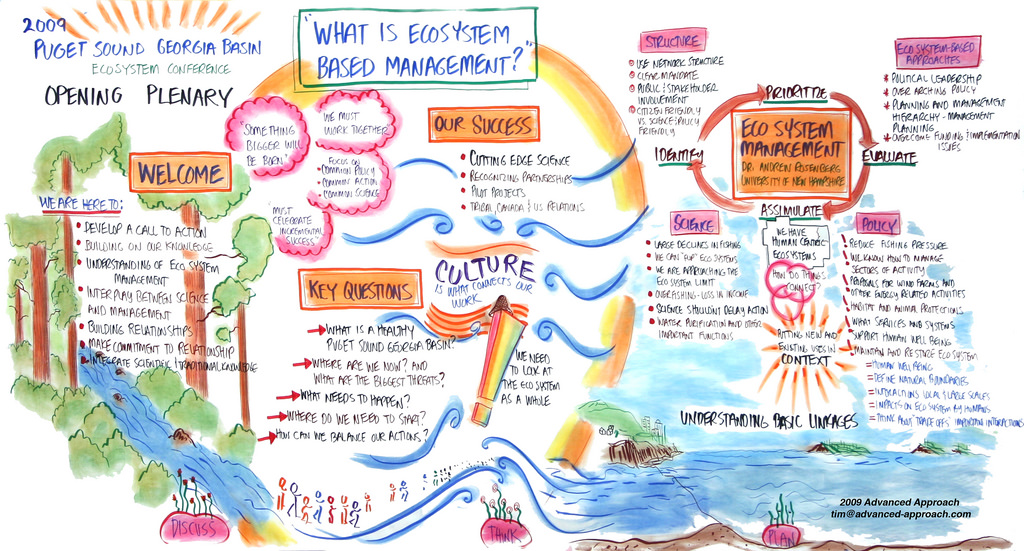 2009
PUGET SOUND GEORGIA BASIN
ECOSYSTEM CONFERENCE
OPENING PLENARY
"WHAT IS ECOSYSTEM
BASED MANAGEMENT?"
"SOMETHING
BIGGER WILL
BE BORN"
WE MUST
WORK TOGETHER
FOCUS ON
• COMMON POLICY
• COMMON ACTION
• COMMON SCIENCE
"MUST
CELEBRATE
INCREMENTAL
SUCCESS"
WELCOME
WE ARE HERE TO:
• DEVELOP A CALL TO ACTION
• BUILDING ON OUR KNOWLEDGE
• UNDERSTANDING OF ECO SYSTEM
MANAGEMENT
• INTERPLAY BETWEEN SCIENCE
AND MANAGEMENT
• BUILDING RELATIONSHIPS
• MAKE COMMITMENT TO RELATIONSHIP
• INTEGRATE SCIENTIFIC / TRADITIONAL KNOWLEDGE
OUR SUCCESS
• CUTTING EDGE SCIENCE
• RECOGNIZING PARTNERSHIPS
• PILOT PROJECTS
• TRIBAL, CANADA & US RELATIONS
CULTURE
IS WHAT CONNECTS OUR
WORK
KEY QUESTIONS
WHAT IS A HEALTHY
PUGET SOUND GEORGIA BASIN?
WHERE ARE WE NOW? AND
WHAT ARE THE BIGGEST THREATS?
WHAT NEEDS TO HAPPEN?
WHERE DO WE NEED TO START?
HOW CAN WE BALANCE OUR ACTIONS?
WE NEED
TO LOOK AT
THE ECO SYSTEM
AS A WHOLE
STRUCTURE
USE NETWORK STRUCTURE
CLEAR MANDATE
PUBLIC & STAKEHOLDER
INVOLVEMENT
CITIZEN FRIENDLY
VS. SCIENCE & POLICY
FRIENDLY
PRIORITIZE
IDENTIFY
EVALUATE
ASSIMILATE
ECO SYSTEM
MANAGEMENT
DR. ANDREW ROSENBERG
UNIVERSITY OF NEW HAMPSHIRE
ECO SYSTEM-BASED
APPROACHES
* POLITICAL LEADERSHIP
* OVER ARCHING POLICY
* PLANNING AND MANAGEMENT
HIERARCHY - MANAGEMENT
PLANNING
* OVERCOME FUNDING & IMPLEMENTATION
ISSUES
SCIENCE
• LARGE DECLINES IN FISHING
• WE CAN "FLIP" ECO SYSTEMS
• WE ARE APPROACHING THE
ECO SYSTEM LIMIT
• OVERFISHING - LOSS IN INCOME
• SCIENCE SHOULDN'T DELAY ACTION
• WATER PURIFICATION AND OTHER
IMPORTANT FUNCTIONS
WE HAVE
HUMAN CENTRIC
ECOSYSTEMS
HOW DO THINGS
CONNECT?
PUTTING NEW AND
EXISTING USES IN
CONTEXT
POLICY
REDUCE FISHING PRESSURE
WE KNOW HOW TO MANAGE
SECTORS OF ACTIVITY
PROPOSALS FOR WIND FARMS AND
OTHER ENERGY RELATED ACTIVITIES
HABITAT AND ANIMAL PROTECTIONS
WHAT SERVICES AND SYSTEMS
SUPPORT HUMAN WELL BEING
MAINTAIN AND RESTORE ECO SYSTEM
= HUMAN WELL BEING
= DEFINE NATURAL BOUNDARIES
= INTERACTIONS LOCAL & LARGE SCALES
= IMPACTS ON ECO SYSTEM BY HUMANS
= THINK ABOUT "TRADE OFFS" IMPORTANT INTERACTIONS
UNDERSTANDING BASIC LINKAGES
DISCUSS
THINK
PLAN
2009 Advanced Approach
tim@advanced-approach.com